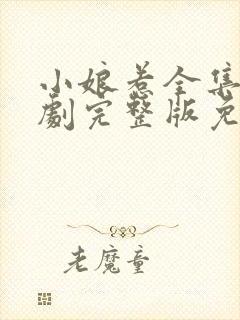 小娘惹全集
劇完整版免
老魔童